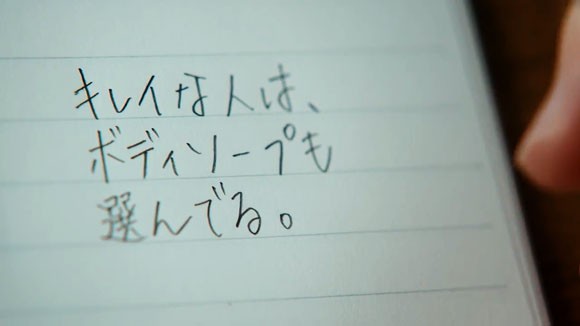 キレイな人は、
ボディソープも
選んでる。